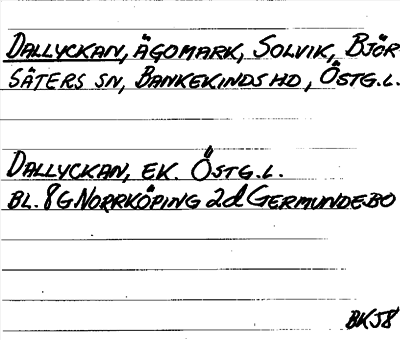 DALLYCKAN, ÄGOMARK, SOLVIK, BJÖR
SÄTERS SN, BANKEKINDS HD, ÖSTG.L.
DALLYCKAN, EK. ÖSTG.L.
BL. 8G NORRKÖPING 2d GERMUNDEBO
BKJ8